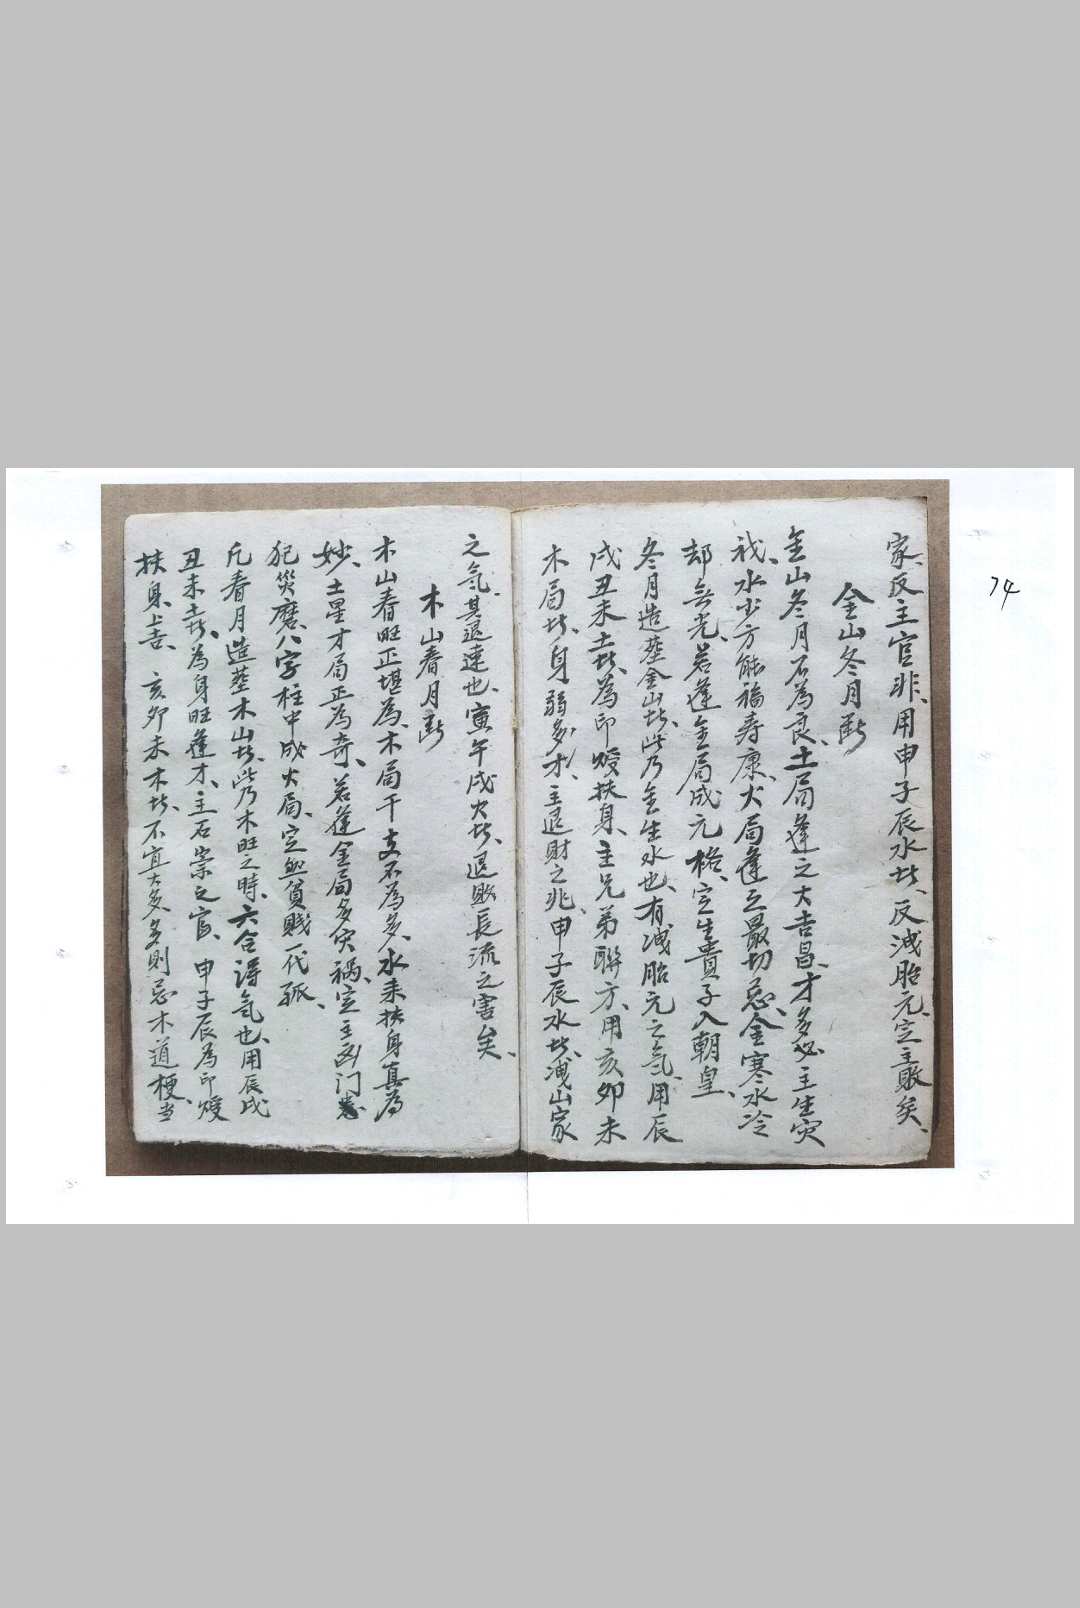 家、反主官非、用申子辰水局、反洩胎元、定主敗矣、
金山冬月断
金山冬月不為良、土局逢之大吉昌、才多必主生灾
我、水少方能福寿康、火局逢之最切忌、金寒水冷
却無光、若逢金局成元格、定生貴子入朝皇、
冬月造塟金山者、此乃金生水也、有洩胎元之氣、用辰
戌丑未土者、為印綬扶身、主兄弟聯方、用亥卯未
木局者、身弱多才、主退財之兆、申子辰水者、洩山家
之氣、其退速也、寅午戌火者、退敗長流之害矣、
木山春月断
木山春旺正堪為、木局干支不為多、水来扶身真為
妙、土星才局正為奇、若逢金局多灾祸、定主凶门
犯災磨、八字柱中成火局、定然貧賤一代孤、
凡春月造塟木山者、此乃木旺之時、六合得氣也、用辰戌
丑未土者、為身旺逢才、主石崇之富、申子辰為印綬
扶身、上吉、亥卯未木者、不宜太多、多則忌木道梗、当
74